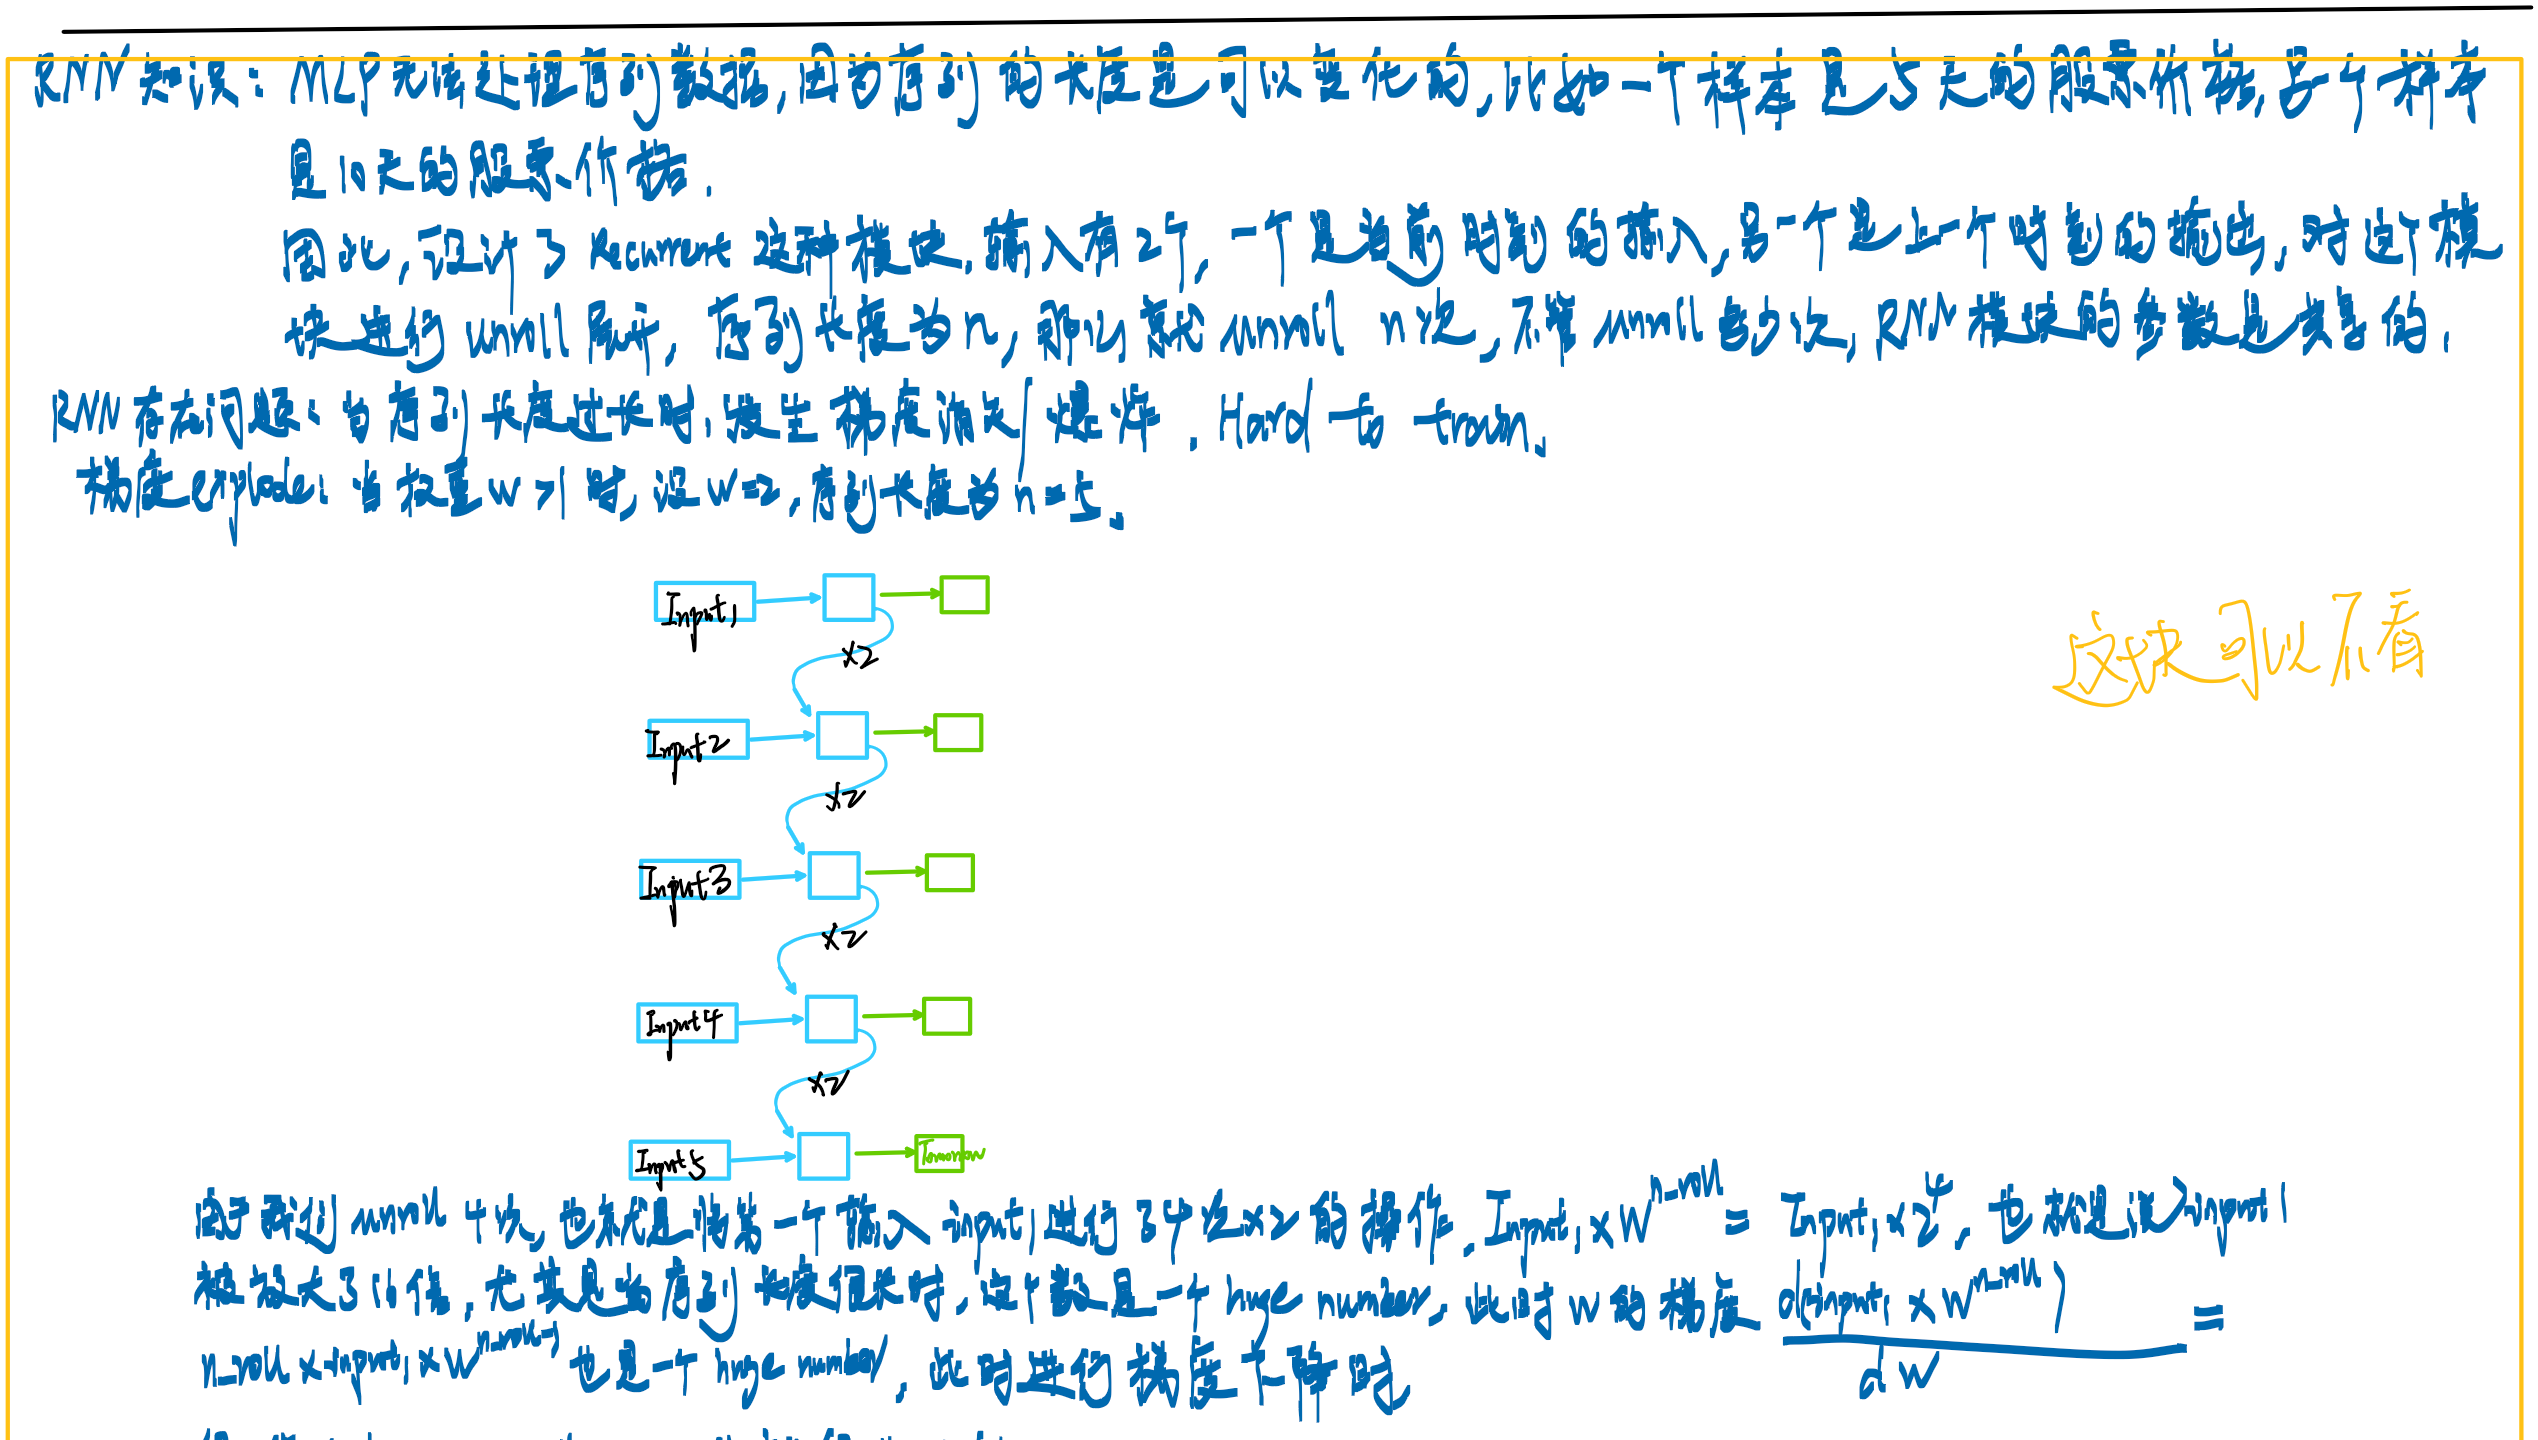 RNN知识：MLP无法处理序列数据，因为序列的长度是可以变化的，比如一个样本是5天的股票价格，另一个样本
是10天的股票价格．
因此，设计了Recurrent这种模块．输入有2个，一个是当前时刻的输入，另一个是上一个时刻的输出，对这个模
块进行unroll展开，序列长度为n，那么就unroll n次，不管unroll多少次，RNN模块的参数是共享的．
RNN存在问题：当序列长度过长时，发生梯度消失/爆炸．Hard to train．
梯度explode：当权重w>1时，设w=2，序列长度为n=5．
Input1
x2
这块可以不看
Input2
x2
Input3
x2
Input4
x2
Input5
由于通过unroll 4次，也就是将第一个输入input1进行了4次×2的操作．Input1×W^n_roll = Input1×2^4，也就是说input1
被放大了16倍，尤其是当序列长度很长时，这个数是一个huge number，此时w的梯度 d(input1×W^n_roll) / dw =
n_roll×input1×W^n_roll-1 也是一个huge number，此时进行梯度下降时